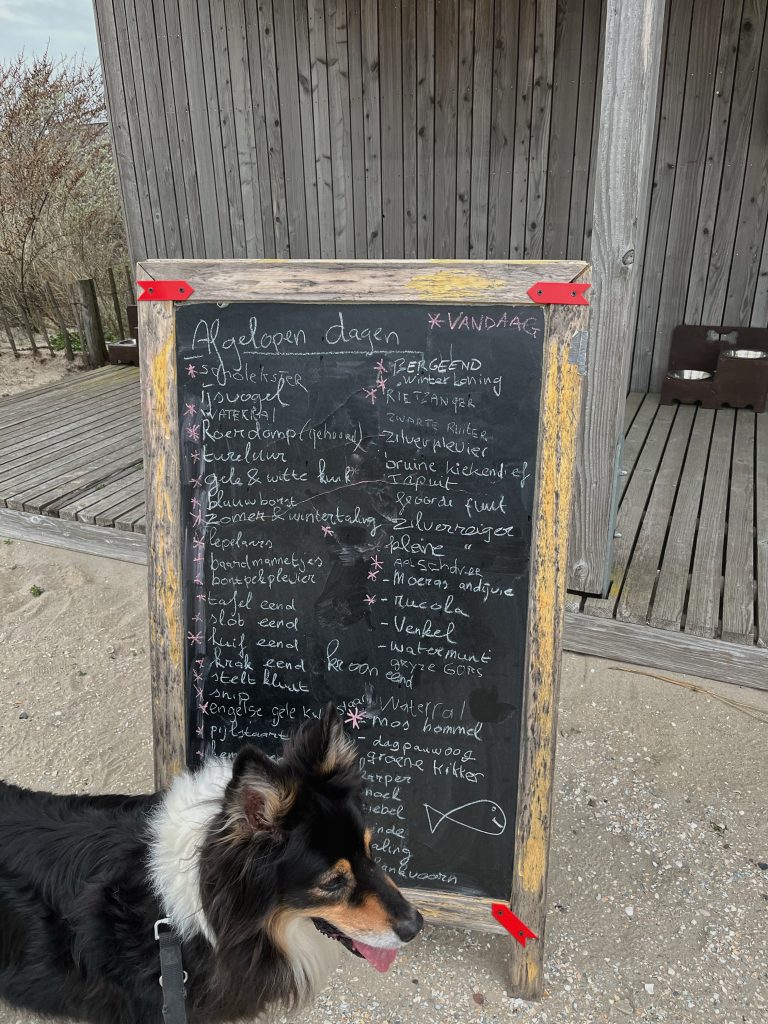 Afgelopen dagen
*VANDAAG
* scholekster
ijsvogel
* WATERRAL
* Roerdomp (gehoord)
* tureluur
* gele & witte kwik
* blauwborst
* zomer & wintertaling
* lepelaars
baardmannetjes
bontbekplevier
tafel eend
slob eend
* kuif eend
krak eend
stelt kluut
snip
engelse gele kwikstaart
pijlstaart
* BERGEEND
* winterkoning
* RIETZANGER
ZWARTE RUITER
- zilverplevier
bruine kiekendief
TAPUIT
geoorde fuut
- zilverreiger
kleine "
* AALSCHOLVER
* - Moeras andijvie
* - rucola
- Venkel
- watermunt
GRYZE GORS
kroon eend
Waterral
* - mos hommel
- dagpauwoog
groene kikker
noek
aling